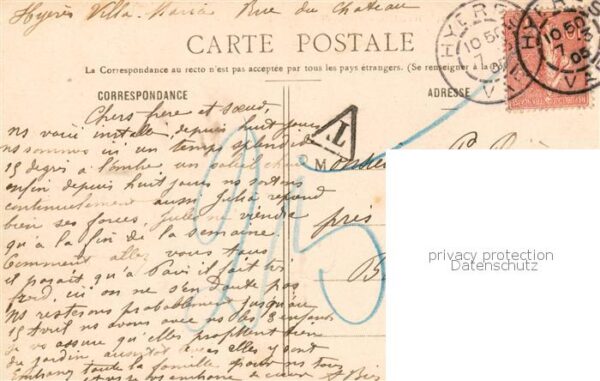 Hyères Villa Maria Rue du Chateau
CARTE POSTALE
La Correspondance au recto n'est pas acceptée par tous les pays étrangers. (Se renseigner à la
CORRESPONDANCE
ADRESSE
HYÈRES
10 50
7 3
05
VAR
HYÈRES
10 50
7 3
05
VAR
T
Chers frère et sœur,
ns voici installé depuis huit jours
ns sommes ici un temps splendide
15 degrés à l'ombre un soleil chaud
enfin depuis huit jours ns sortons
continuellement aussi Julia reprend
bien ses forces Jules ne viendra
qu'à la fin de la semaine.
Comment allez vous tous
il parait qu'à Paris il fait très
froid, ici on ne s'en doute pas
Ns resterons probablement jusqu'au
15 Avril ns avons avec ns les 3 enfants
je vs assure qu'elles profitent bien
du jardin, aussitôt avec elles y sont
Embrassez toute la famille pour ns tous
M
près
25
privacy protection
Datenschutz